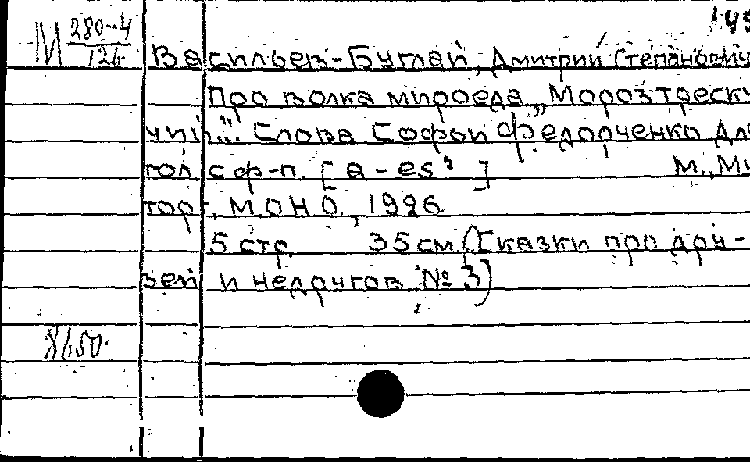 149
М 280-4
126
Васильев-Буглай, Дмитрий Степанович
Про волка мироеда „Мороз треску
чий..." Слова Софьи Федорченко Для
гол. с ф-п. [a - es²] М., Му
торг, МОНО, 1926.
5 стр. 35 см. (Сказки про дру-
зей и недругов № 3)
8150.